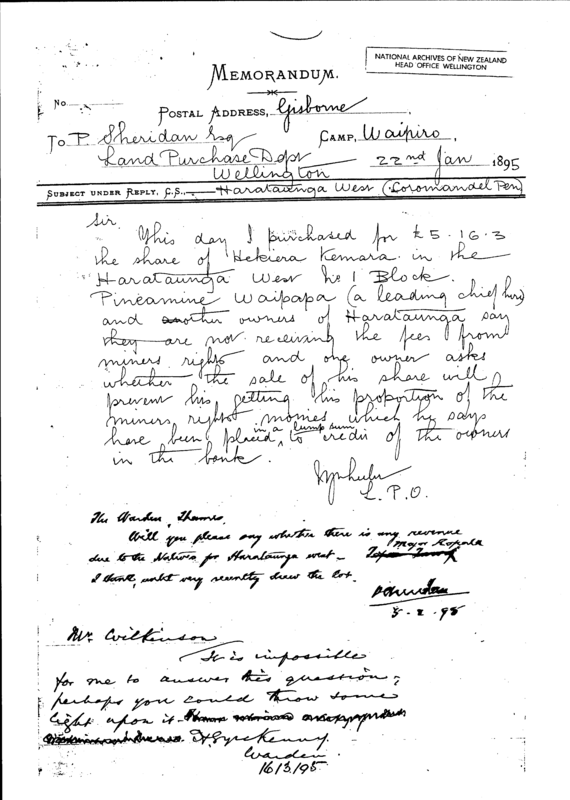 NATIONAL ARCHIVES OF NEW ZEALAND
HEAD OFFICE WELLINGTON
MEMORANDUM.
No.
POSTAL ADDRESS, Gisborne
To P. Sheridan Esq CAMP, Waipiro,
Land Purchase Dept
Wellington 22nd Jan 1895
SUBJECT UNDER REPLY, C.S., Harataunga West (Coromandel Pen)
Sir.
This day I purchased for £5.16.3
the share of Hekiera Kemara in the
Harataunga West No 1 Block.
Pineamine Waipapa (a leading chief here)
and another owners of Harataunga say
they are not receiving the fees from
miners rights and one owner asks
whether the sale of his share will
prevent his getting his proportion of the
miners rights monies which he says
have been placed, in a lump sum to credit of the owners
in the bank.
L.P.O.
The Warden, Thames.
Will you please say whether there is any revenue
due to the Natives for Harataunga west - Major Ropata
I think, until very recently drew the lot.
5-2-95
Mr. Wilkinson
It is impossible
for me to answer this question;
perhaps you could throw some
light upon it
Warden.
16/3/95